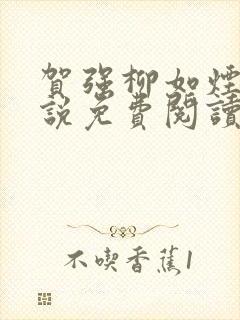 賀強柳如煙
說免費閱讀
不喫香蕉1